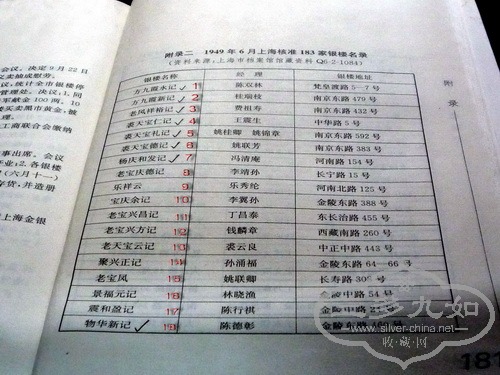 附录二 1949年6月上海核准183家银楼名录
(资料来源:上海市档案馆馆藏资料Q6-2-1084)
银楼名称 经理 银楼地址
方九霞永记 1 陈双林 梵皇渡路5—7号
方九霞新记 2 桂瑞枝 南京东路479号
老凤祥裕记 3 费祖寿 南京东路432号
裘天宝仁记 4 王震生 中华路5号
裘天宝礼记 5 姚桂卿 姚锦章 南京东路592号
裘天宝德记 6 姚联芳 南京东路383号
杨庆和发记 7 冯清庵 河南路154号
老宝庆德记 8 李靖孙 长宁路15号
乐祥云 9 乐秀纶 河南北路125号
宝庆余记 10 李翼孙 金陵东路388号
老宝兴昌记 11 丁昌泰 东长治路455号
老宝兴方记 12 钱麟章 西藏南路260号
老天宝云记 13 裘云良 中正中路443号
聚兴正记 14 孙涌福 金陵东路64—66号
老宝凤 15 姚联卿 长寿路30 号
景福元记 16 林晓渔 陵中路54号
震和盈记 17 陈行祺 金陵中路21
物华新记 18 陈德彰 金陵东路
附录
会议,决定9月22日
金缴纳
事出席。会议
册
上海金银
九如
www.silver-china.net
收·藏·网